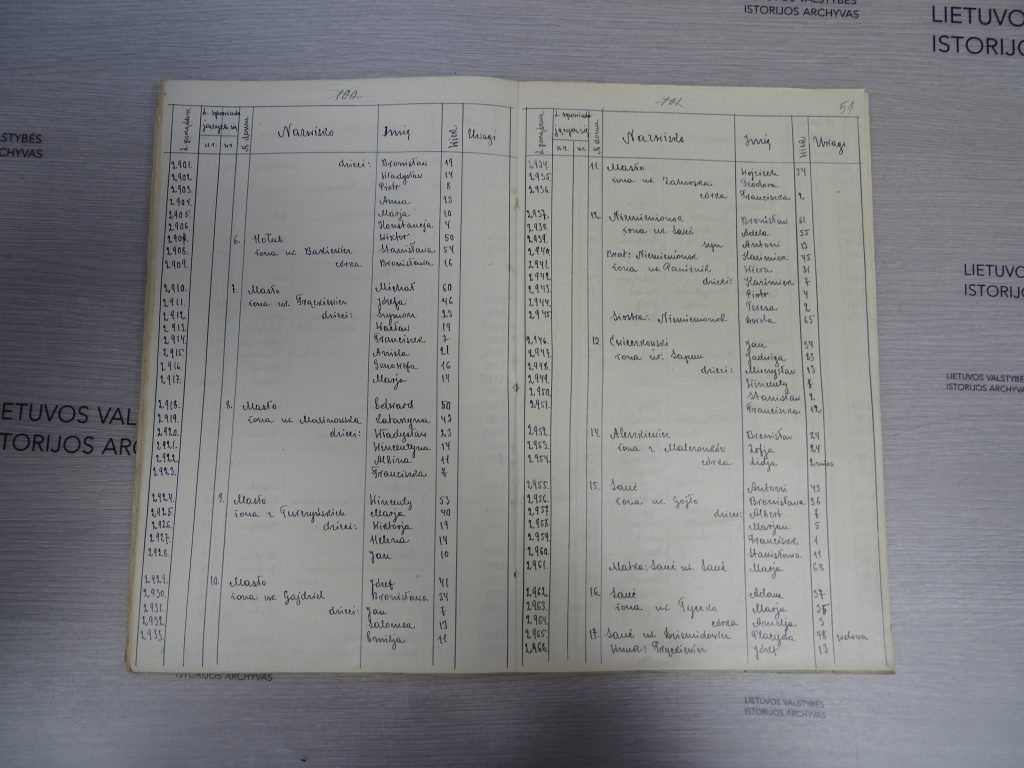 LIETUVOS VALSTYBĖS
ISTORIJOS ARCHYVAS
100
L. porządkowa
L. spowiadających się
m. m.
№ domu
Nazwisko
Imię
Wiek
Uwagi
2901. dzieci: Bronisław 19
2902. Władysław 14
2903. Piotr 8
2904. Anna 13
2905. Marja 10
2906. Konstancja 4
2907. 6. Hołub Wiktor 50
2908. żona ur. Stanisława 54
2909. córka Bronisława 16
2910. 7. Masło Michał 60
2911. żona ur. Frąckiewicz Józefa 46
2912. dzieci: Szymon 23
2913. Wacław 19
2914. Franciszek 7
2915. Aniela 21
2916. Genowefa 16
2917. Marja 14
2918. 8. Masło Edward 50
2919. żona ur. Malinowska Katarzyna 43
2920. dzieci: Władysław 23
2921. Wincentyna 14
2922. Albina 11
2923. Franciszka 7
2924. 9. Masło Wincenty 53
2925 żona z Turczyńskich Marja 40
2926. dzieci: Wiktorja 19
2927. Helena 14
2928. Jan 10
2929. 10. Masło Józef 41
2930. żona ur. Gajdziel Bronisława 34
2931. dzieci: Jan 7
2932. Salomea 13
2933. Emilja 11
101
51
L. porządkowa
Nazwisko
Imię
Wiek
Uwagi
2934. 11. Masło Wojciech 24
2935. żona ur. Teodora
2936. córka Franciszka 2
2937. 12. Niemienionok Bronisław 61
2938. żona ur. Sauć Adela 55
2939. syn Antoni 13
2940. Brat: Niemienionok Kazimierz 45
2941. żona ur. Wiera 31
2942. dzieci: Kazimierz 7
2943. Piotr 4
2944. Teresa 2
2945 Siostra: Niemienionok Dorota 65
2946. 13. Ćwierkowski Jan 34
2947. żona ur. Jadwiga 33
2948. dzieci: Mieczysław 13
2949. Wincenty 7
2950. Stanisław 2
2951. Franciszka 12
2952. 14. Aleszkiewicz Bronisław 24
2953. żona z Zofja 24
2954. córka Lidja 2 mies
2955. 15. Sauć Antoni 43
2956. żona ur. Gojło Bronisława 36
2957 dzieci: Albert 7
2958. Marjan 5
2959. Franciszek 1
2960. Stanisława 11
2961. Matka: Sauć ur. Sauć Marja 64
2962. 16. Sauć Adam 37
2963. żona ur. Marja 35
2964. córka Amelja 3
2965. 17. Sauć ur. Dziemidowicz Placyda 78 wdowa
2966. Wnuk: Frąckiewicz Józef 13
LIETUVOS VALSTYBĖS
ISTORIJOS ARCHYVAS